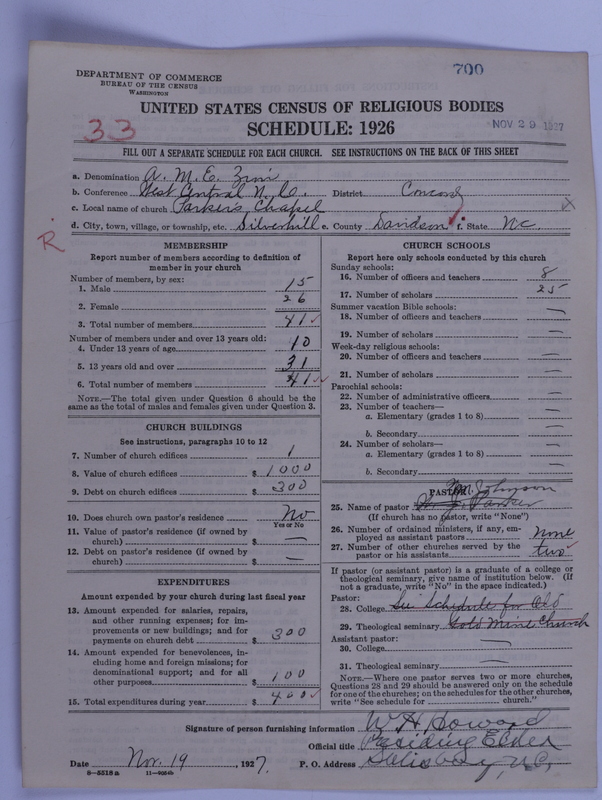 700
DEPARTMENT OF COMMERCE
BUREAU OF THE CENSUS
WASHINGTON
UNITED STATES CENSUS OF RELIGIOUS BODIES
33
SCHEDULE: 1926
NOV 29 1927
FILL OUT A SEPARATE SCHEDULE FOR EACH CHURCH. SEE INSTRUCTIONS ON THE BACK OF THIS SHEET
a. Denomination A. M. E. Zion
b. Conference West Central N. C. District Concord
c. Local name of church Parkers Chapel
d. City, town, village, or township, etc. Silverhill e. County Davidson f. State N.C.
R
MEMBERSHIP
Report number of members according to definition of
member in your church
Number of members, by sex:
1. Male 15
2. Female 26
3. Total number of members 41
Number of members under and over 13 years old:
4. Under 13 years of age 10
5. 13 years old and over 31
6. Total number of members 41
NOTE.—The total given under Question 6 should be
same as the total of males and females given under Question 3.
CHURCH BUILDINGS
See instructions, paragraphs 10 to 12
7. Number of church edifices 1
8. Value of church edifices $ 1000
9. Debt on church edifices $ 300
10. Does church own pastor's residence No
Yes or No
11. Value of pastor's residence (if owned by
church) $ —
12. Debt on pastor's residence (if owned by
church) $ —
EXPENDITURES
Amount expended by your church during last fiscal year
13. Amount expended for salaries, repairs,
and other running expenses; for im-
provements or new building; and for
payments on church debt $ 300
14. Amount expended for benevolences, in-
cluding home and foreign missions; for
denominational support; and for all
other purposes $ 100
15. Total expenditures during year $ 400
CHURCH SCHOOLS
Report here only schools conducted by this church
Sunday schools:
16. Number of officers and teachers 8
17. Number of scholars 25
Summer vacation Bible schools:
18. Number of officers and teachers —
19. Number of scholars —
Week-day religious schools:
20. Number of officers and teachers —
21. Number of scholars —
Parochial schools:
22. Number of administrative officers —
23. Number of teachers—
a. Elementary (grades 1 to 8) —
b. Secondary —
24. Number of scholars—
a. Elementary (grades 1 to 8) —
b. Secondary —
PASTOR
Johnson
25. Name of pastor Parker
(If church has no pastor, write "None")
26. Number of ordained ministers, if any, em-
ployed as assistant pastors None
27. Number of other churches served by the
pastor or his assistants two
If pastor (or assistant pastor) is a graduate of a college or
theological seminary, give name of institution below. (If
not a graduate, write "No" in the space indicated.)
Pastor:
28. College See Schedule for Old
29. Theological seminary Gold Mine Church
Assistant pastor:
30. College —
31. Theological seminary —
NOTE.—Where one pastor serves two or more churches,
Questions 28 and 29 should be answered only on the schedule
for one of the churches; on the schedules for the other churches,
write "See schedule for church."
Signature of person furnishing information W. H. Howard
Official title Presiding Elder
Date Nov. 19, 1927. P. O. Address Salisbury, N.C.
8—5518a